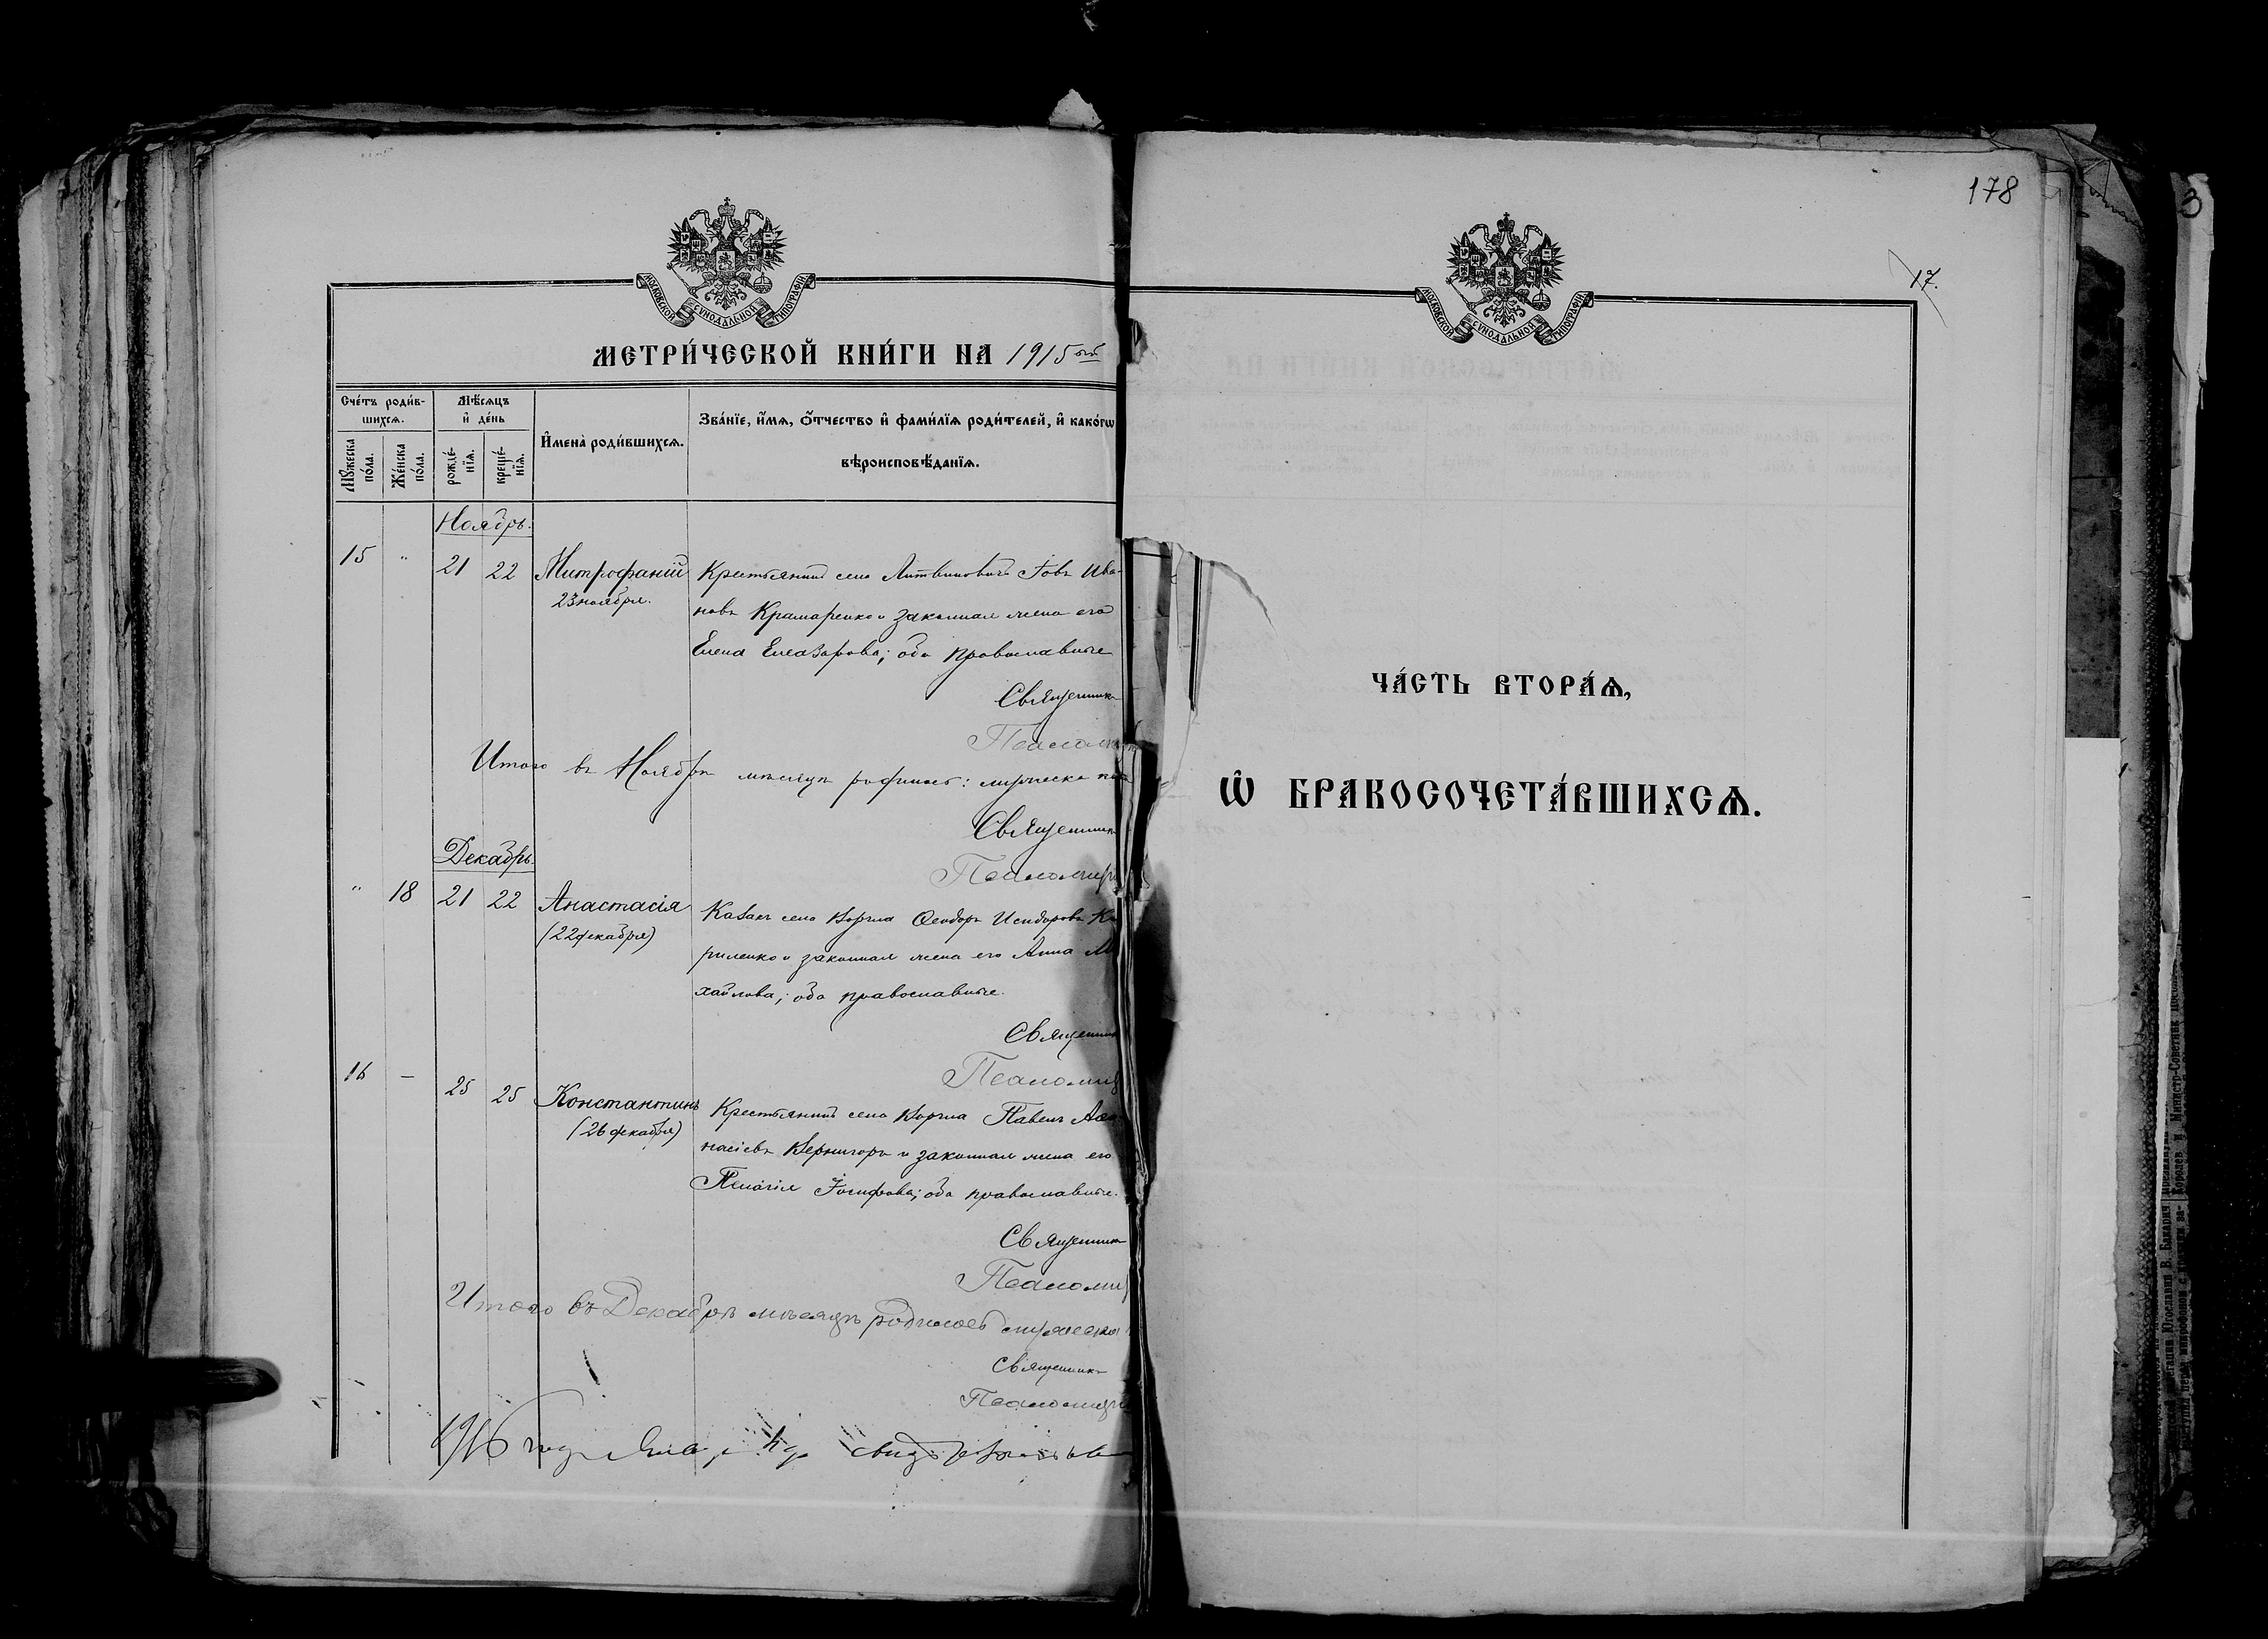 МОСКОВСКОЙ СУНОДАЛЬНОЙ ТИПОГРАФІИ
МЕТРИ́ЧЕСКОЙ КНИ́ГИ НА 1915ый
Сче́тъ роди́вшихсѧ.
Мꙋ́жеска по́ла.
Же́нска по́ла.
Мѣ́сѧцъ и҆ де́нь
рожде́нїѧ.
креще́нїѧ.
И҆мена̀ роди́вшихсѧ.
Зва́нїе, и҆́мѧ, ѻ҆́тчество и҆ фами́лїѧ роди́телей, и҆ како́гѡ
вѣроисповѣ́данїѧ.
Ноябрь.
15 " 21 22 Митрофаній Крестьянинъ села Литвиновичъ Іовъ Ива-
23 ноября. новъ Крамаренко и законная жена его
Елена Елеазарова; оба православные
Священникъ
Псалом
Итого въ Ноябрѣ мѣсяцѣ родилось: мужеска
Священникъ
Псаломщ
Декабрь.
" 18 21 22 Анастасія Казакъ села Корма Ѳеодоръ Исидоровъ Ки
(22 декабря) риленко и законная жена его Анна Ми
хайлова; оба православные.
Священник
Псаломщ
16 — 25 25 Константинъ Крестьянинъ села Корма Павелъ Аѳа
(26 декабря) насіевъ и законная жена его
Пелагія Іосифова; оба православные.
Священник
Псаломщ
Итого въ Декабрѣ мѣсяцѣ родилось мужеска
Священникъ
Псаломщи
1916 года
178
17.
МОСКОВСКОЙ СУНОДАЛЬНОЙ ТИПОГРАФІИ
ЧА́СТЬ ВТОРА́Ѧ,
Ѡ҆ БРАКОСОЧЕТА́ВШИХСѦ.
3